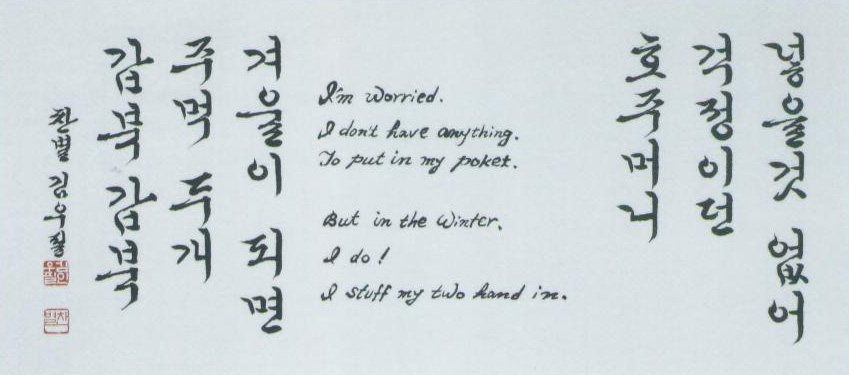 넣을것 없어
걱정이던
호주머니
I'm worried.
I don't have anything.
To put in my poket.
But in the Winter.
I do!
I stuff my two hand in.
겨울이 되면
주먹 두개
갑북 갑북
찬별